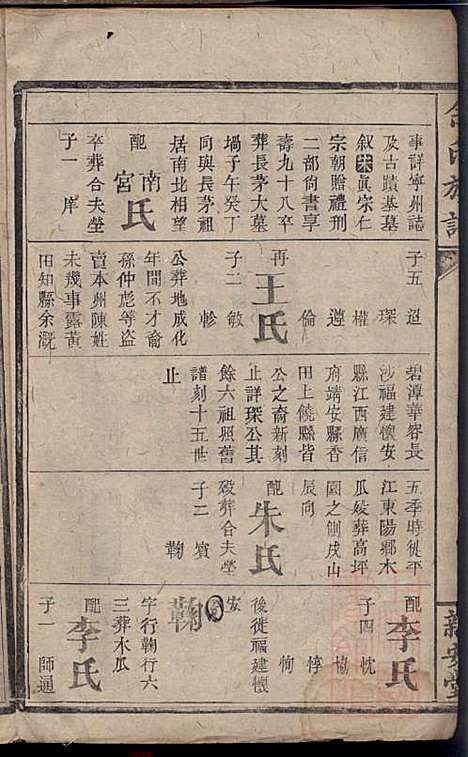 事詳寧州誌
及古蹟基墓
叙宋真宗仁
宗朝贈禮刑
二部尙書享
壽九十八卒
葬長茅大墓
堝子午癸丁
向與長茅祖
居南北相望
配南宮氏
卒葬合夫塋
子一 庠
子五 迢
琛
權
遵
倫
再王氏
子二 敏
軫
公葬地成化
年間不才裔
孫仲彪等盗
賣本州陳姓
未幾事露黃
田知縣余溉
碧潭華容長
沙福建懷安
縣江西廣信
府靖安縣香
田上饒縣皆
公之裔新刻
止詳琛公其
餘六祖照舊
譜刻十五世
止
五季時徙平
江東陽鄉木
瓜妓葬高坪
園之側戌山
辰向
配朱氏
殁葬合夫塋
子二 賓
鞠
配李氏
子四 忱
協
悙
恂
後徙福建懷
安
鞠
字行鞠行六
三葬木瓜
配李氏
子一 師通
新安堂